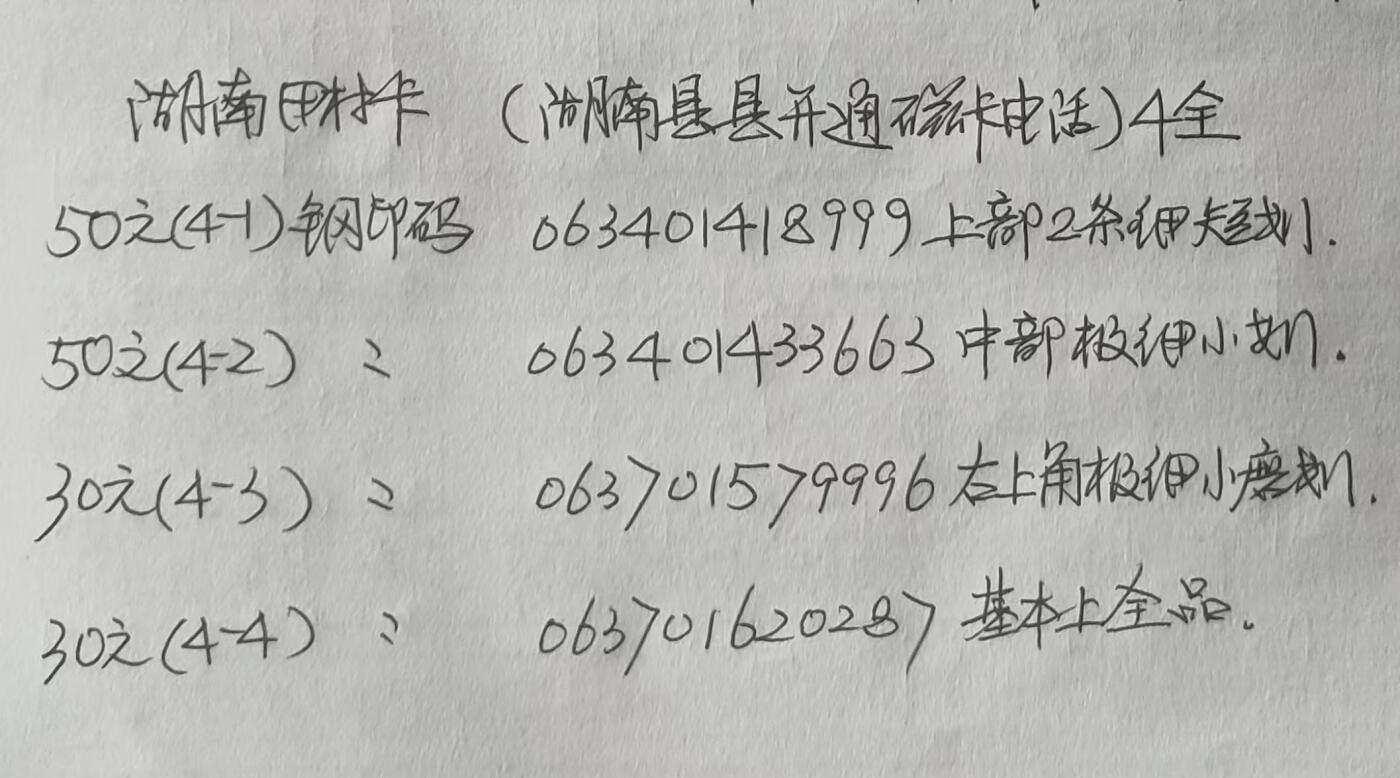 湖南田村卡 (湖南县县开通磁卡电话)4全
50元(4-1)钢印码 063401418999上部2条细短划.
50元(4-2) 〃 063401433663中部极细小划.
30元(4-3) 〃 063701579996右上角极细小磨划.
30元(4-4) 〃 063701620287基本上全品.